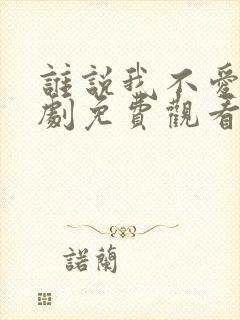 誰説我不愛
劇免費觀看
諾蘭